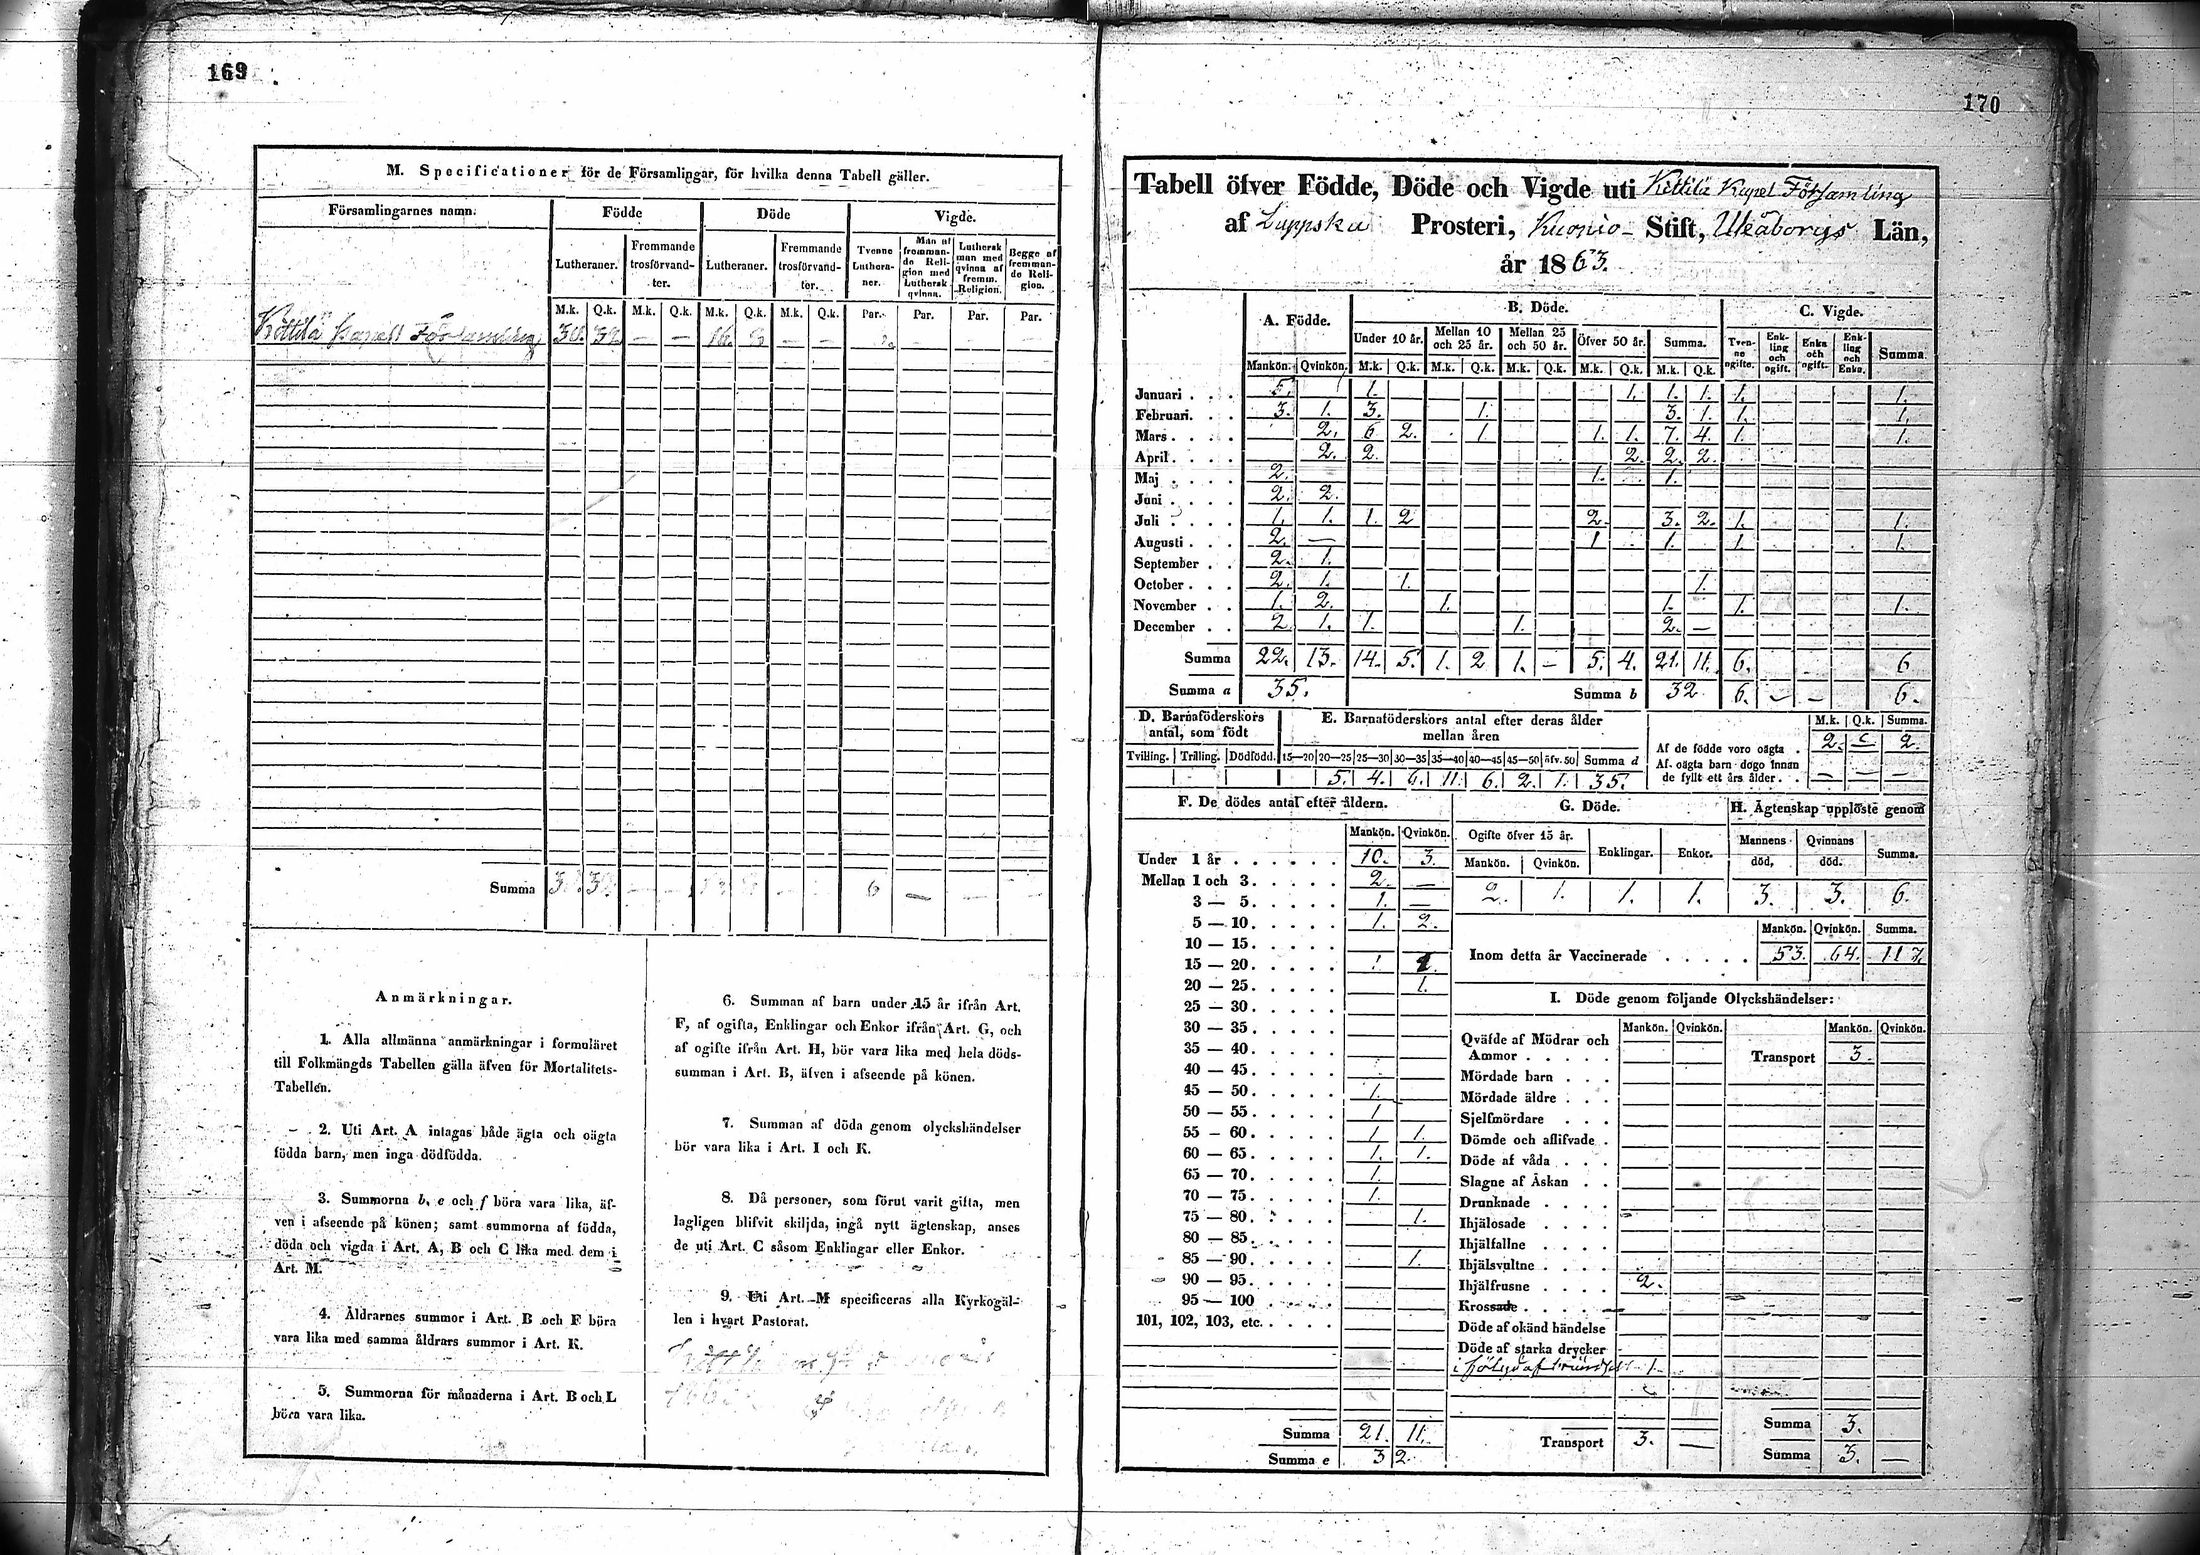 169
M. Specificationer för de Församlingar, för hvilka denna Tabell gäller.
Församlingarnes namn.
Födde
Döde
Vigde.
Lutheraner.
Fremmande trosförvandter.
Lutheraner.
Fremmande trosförvandter.
Tvenne Lutheraner.
Man af fremmande Religion med Luthersk qvinna.
Luthersk man med qvinna af fremm. Religion.
Begge af fremmande Religion.
M.k. Q.k. M.k. Q.k. M.k. Q.k. M.k. Q.k. Par. Par. Par. Par.
Kittilä Kapell Församling
Summa 6 —
Anmärkningar.
1. Alla allmänna anmärkningar i formuläret
till Folkmängds Tabellen gälla äfven för Mortalitets-
Tabellen.
2. Uti Art. A intagas både ägta och oägta
födda barn, men inga dödfödda.
3. Summorna b, e och f böra vara lika, äf-
ven i afseende på könen; samt summorna af födda,
döda och vigda i Art. A, B och C lika med dem i
Art. M.
4. Åldrarnes summor i Art. B och F böra
vara lika med samma åldrars summor i Art. K.
5. Summorna för månaderna i Art. B och L
böra vara lika.
6. Summan af barn under 15 år ifrån Art.
F, af ogifta, Enklingar och Enkor ifrån Art. G, och
af ogifte ifrån Art. H, bör vara lika med hela döds-
summan i Art. B, äfven i afseende på könen.
7. Summan af döda genom olyckshändelser
bör vara lika i Art. I och K.
8. Då personer, som förut varit gifta, men
lagligen blifvit skiljda, ingå nytt ägtenskap, anses
de uti Art. C såsom Enklingar eller Enkor.
9. Uti Art. M specificeras alla Kyrkogäl-
len i hvart Pastorat.
170
Tabell öfver Födde, Döde och Vigde uti Kittilä Kapel Församling
af Lappska Prosteri, Kuopio Stift, Uleåborgs Län,
år 1863.
A. Födde.
B. Döde.
C. Vigde.
Under 10 år.
Mellan 10 och 25 år.
Mellan 25 och 50 år.
Öfver 50 år.
Summa.
Tvenne ogifte.
Enkling och ogift.
Enka och ogift.
Enkling och Enka.
Summa.
Mankön. Qvinkön. M.k. Q.k. M.k. Q.k. M.k. Q.k. M.k. Q.k. M.k. Q.k.
Januari . . . 5. 1. 1. 1. 1. 1. 1.
Februari. . . 3. 1. 3. 1. 3. 1. 1. 1.
Mars . . . . 2. 6 2. 1. 1. 1. 7. 4. 1. 1.
April . . . . 2. 2. 2. 2. 2.
Maj . . . . 2. 1. 1.
Juni . . . . 2. 2.
Juli . . . . 1. 1. 1. 2 2. 3. 2. 1. 1.
Augusti . . . 2. — 1 1. 1. 1.
September . . 2. 1.
October . . . 2. 1. 1. 1.
November . . 1. 2. 1. 1. 1. 1.
December . . 2 1. 1. 1. 2. —
Summa 22. 13. 14. 5. 1. 2 1. — 5. 4. 21. 11. 6. 6
Summa a 35. Summa b 32 6. — — 6.
D. Barnaföderskors antal, som födt
E. Barnaföderskors antal efter deras ålder mellan åren
Tvilling. Trilling. Dödfödd. 15—20 20—25 25—30 30—35 35—40 40—45 45—50 öfv. 50 Summa d
5. 4. 6. 11. 6. 2. 1. 35.
M.k. Q.k. Summa.
Af de födde voro oägta . 2. 2.
Af oägta barn dogo innan
de fyllt ett års ålder . . — — —
F. De dödes antal efter åldern.
Mankön. Qvinkön.
Under 1 år . . . . . . 10. 3.
Mellan 1 och 3. . . . . 2. —
3 — 5. . . . . 1. —
5 — 10. . . . . 1. 2.
10 — 15. . . . .
15 — 20. . . . . 1 1.
20 — 25. . . . . 1.
25 — 30. . . . .
30 — 35. . . . .
35 — 40. . . . .
40 — 45. . . . .
45 — 50. . . . . 1.
50 — 55. . . . . 1
55 — 60. . . . . 1 1.
60 — 65. . . . . 1. 1.
65 — 70. . . . . 1.
70 — 75. . . . . 1.
75 — 80. . . . . 1.
80 — 85. . . . .
85 — 90. . . . . 1.
90 — 95. . . . .
95 — 100 . . . .
101, 102, 103, etc. . . . .
Summa 21. 11.
Summa e 32
G. Döde.
Ogifte öfver 15 år.
Mankön. Qvinkön.
Enklingar.
Enkor.
2. 1. 1. 1.
H. Ägtenskap upplöste genom
Mannens död,
Qvinnans död.
Summa.
3. 3. 6.
Mankön. Qvinkön. Summa.
Inom detta år Vaccinerade . . . . . 53. 64. 117.
I. Döde genom följande Olyckshändelser:
Mankön. Qvinkön. Mankön. Qvinkön.
Qväfde af Mödrar och
Ammor . . . . .
Transport 3.
Mördade barn . . .
Mördade äldre . . .
Sjelfmördare . . .
Dömde och aflifvade .
Döde af våda . . .
Slagne af Åskan . .
Drunknade . . . .
Ihjälosade . . . .
Ihjälfallne . . . .
Ihjälsvultne . . . .
Ihjälfrusne . . . . 2.
Krossade . . . .
Döde af okänd händelse
Döde af starka drycker
i följd af 1.
Transport 3. —
Summa 3.
Summa 3. —